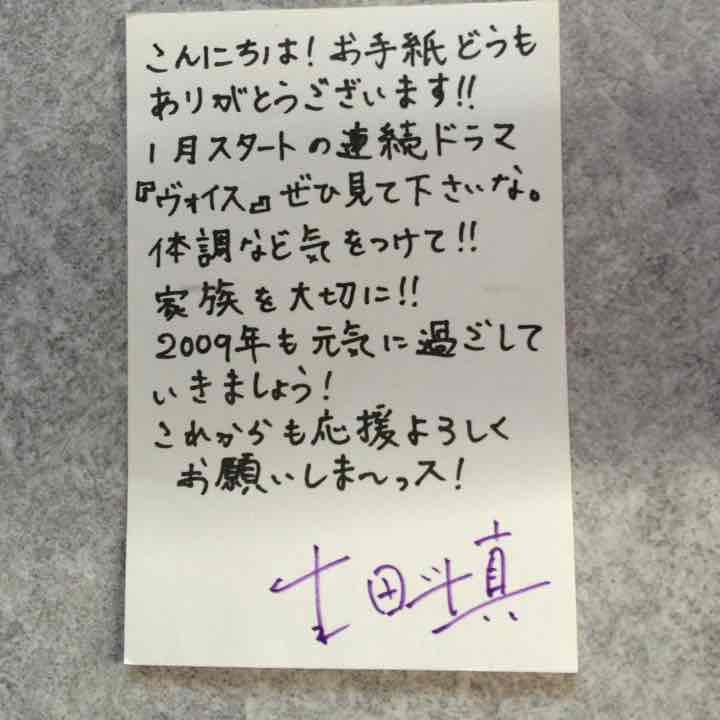 こんにちは！お手紙どうも
ありがとうございます!!
1月スタートの連続ドラマ
『ヴォイス』ぜひ見て下さいな。
体調など気をつけて!!
家族を大切に!!
2009年も元気に過ごして
いきましょう！
これからも応援よろしく
お願いしま〜っス！
生田斗真